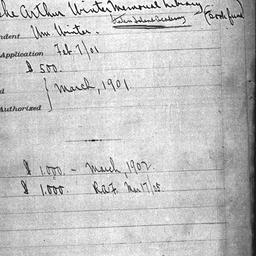 The Arthur Winter Memorial Library
(Book fund)
Staten Island Academy
ndent Wm. Winter.
Application Feb 7/01
$ 500.
d } March, 1901
Authorized
$ 1,000 - March, 1902.
$ 1.000.